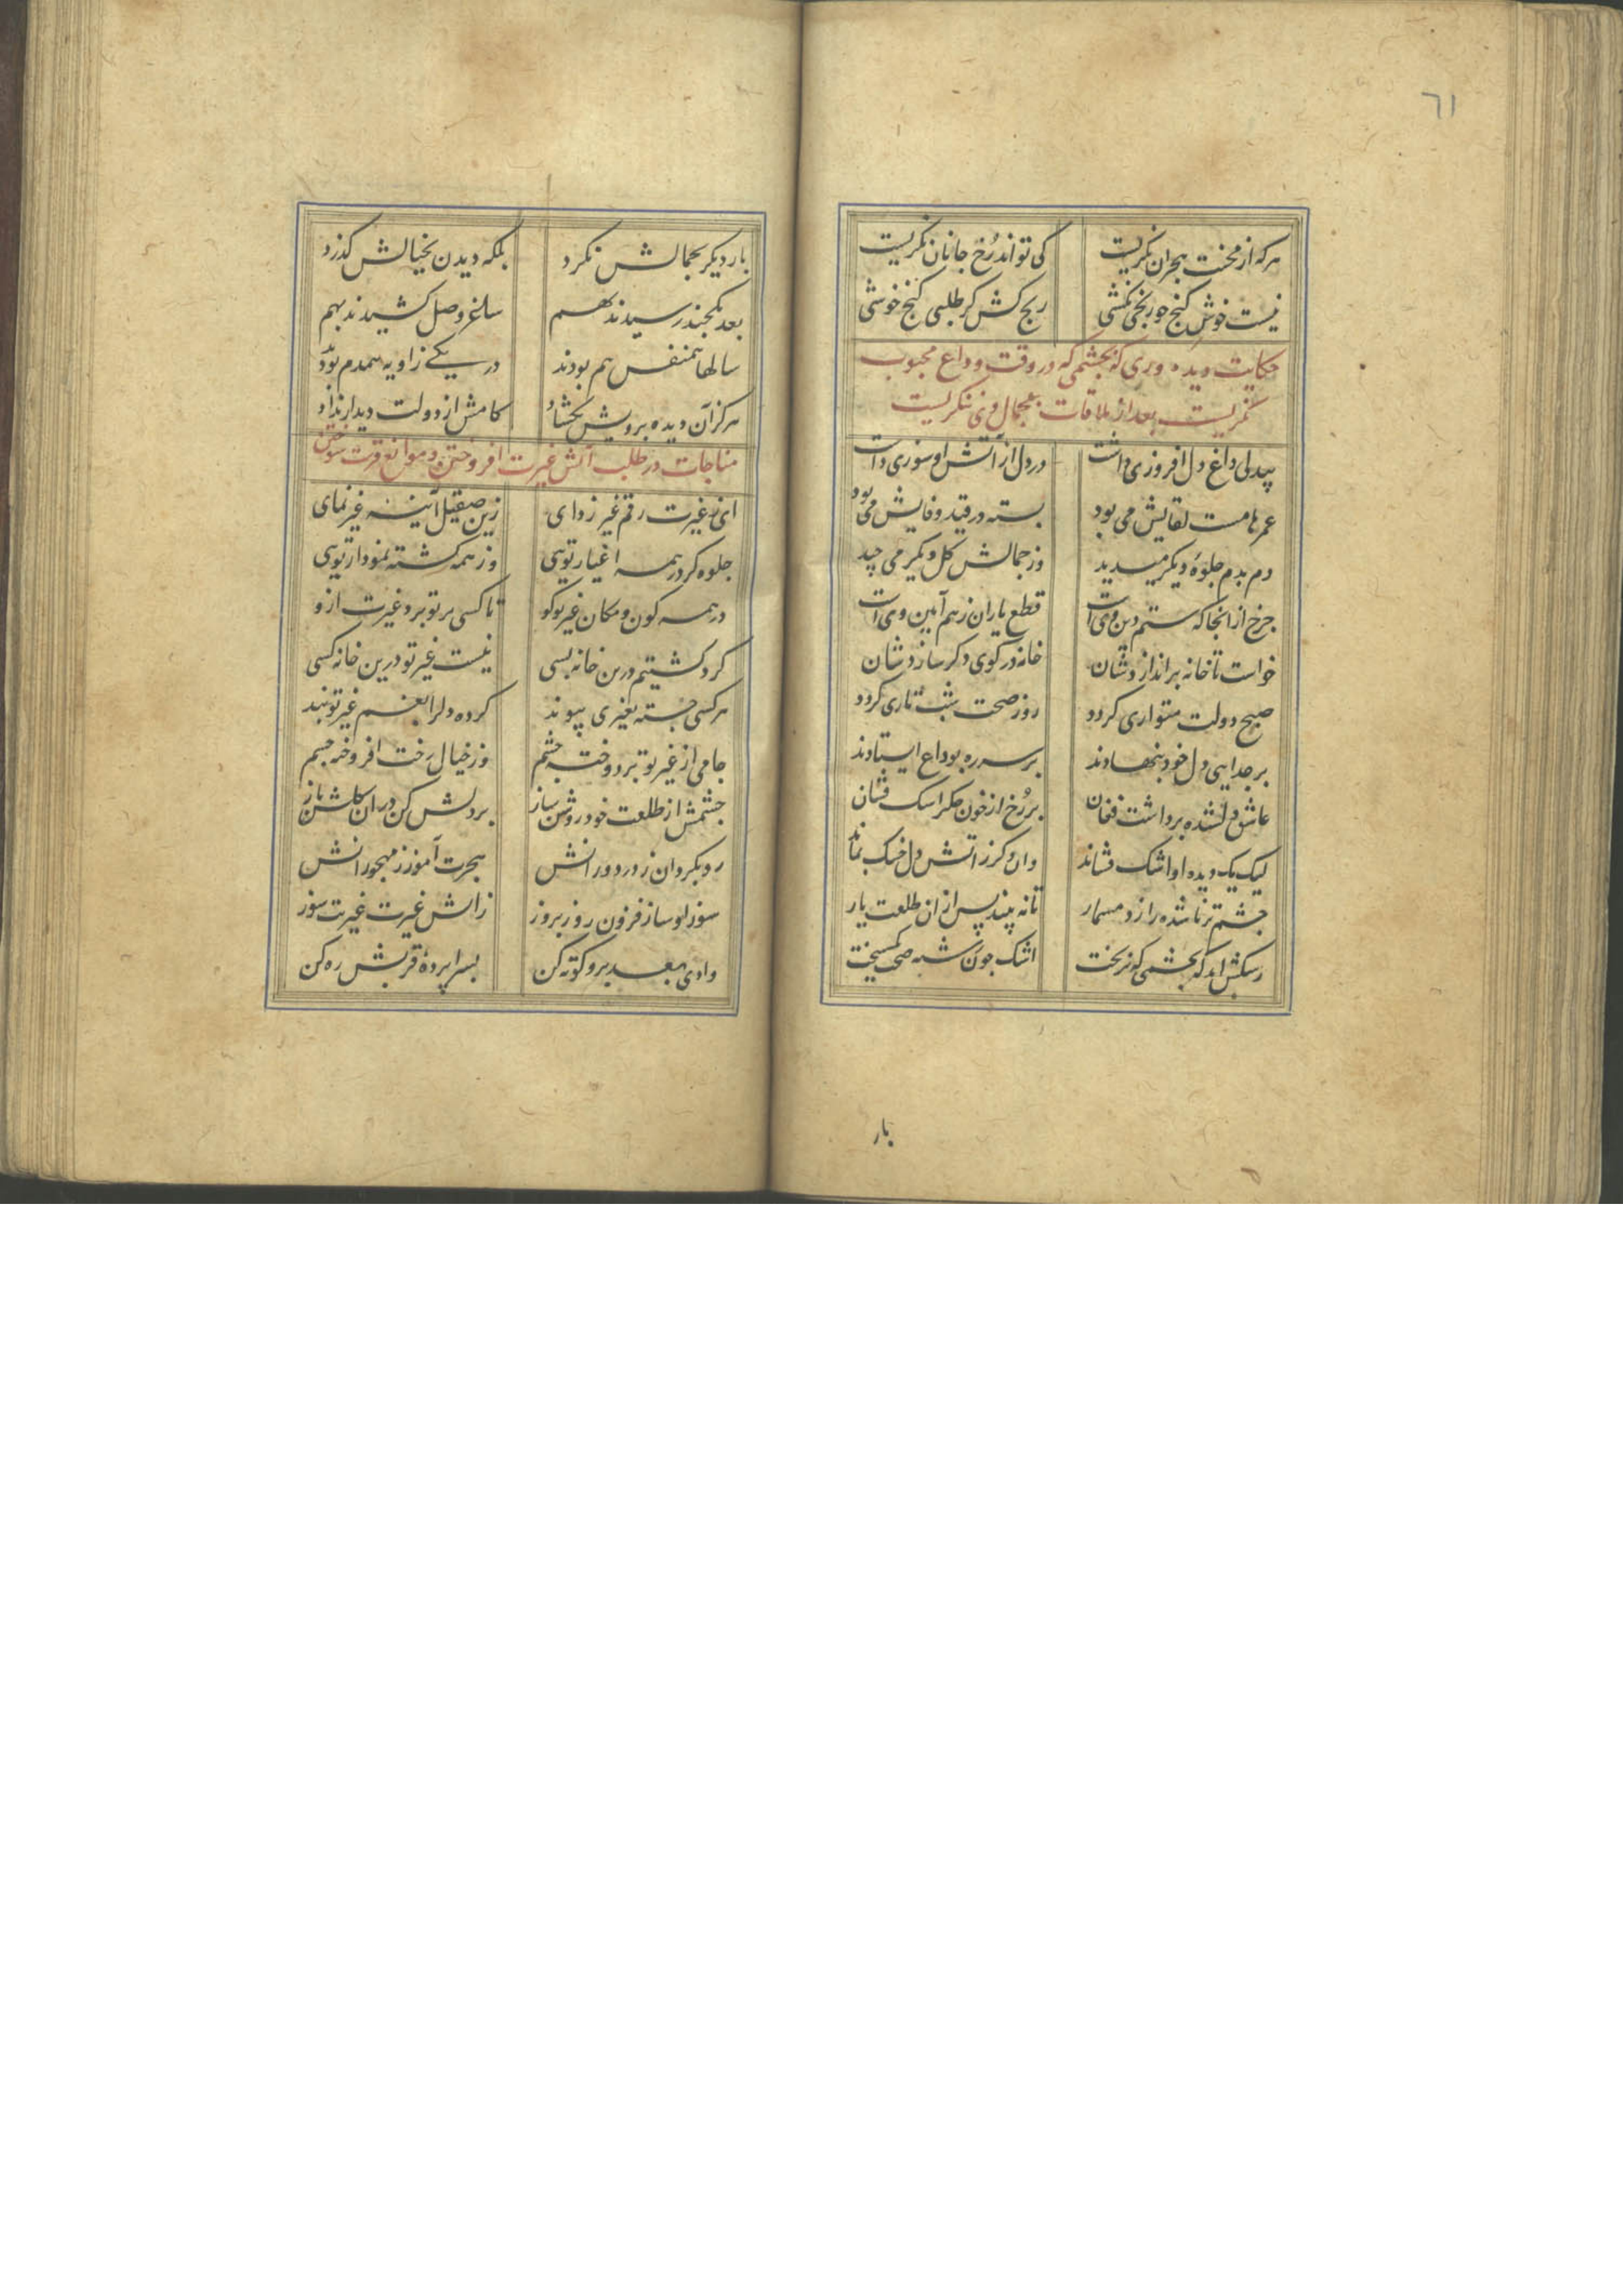 ٦١
هرکه از محنت هجران نگریست کی تواند رُخ جانان نگریست
نیست خوش گنج چو رنجی نکشی رنج کش کر طلبی کنج خوشی
حکایت دیده وری که بچشمی که در وقت وداع محبوب
نگریست بعد از ملاقات بجمال وی ننگریست
بیدلی داغ دل افروزی داشت در دل از آتش او سوزی داشت
عمرها مست لقایش می بود بسته در قید وفایش می بود
دم بدم جلوهٔ دیکر میدید وز جمالش کل دیکر می چید
چرخ از انجا که ستم دین وی است قطع یاران ز هم آیین وی است
خواست تا خانه براندازدشان خانه در کوی دکر سازدشان
صبح دولت متواری کردد روز صحت شب تاری کردد
بر جدایی دل خود بنهادند بر سر ره بوداع ایستادند
عاشق دلشده برداشت فغان بر رُخ از خون جکر اشک فشان
لیک یک دیده او اشک فشاند وان دکر ز اتش دل خشک بماند
چشم تر ناشده را زد مسمار تا نه بیند پس از ان طلعت یار
رشکش امد که بچشمی که نریخت اشک چون شبه صحبت کسیخت
بار
بار دیکر بجمالش نکرد بلکه دیدن بخیالش کذرد
بعد یکچند رسیدند بهم ساغر وصل کشیدند بهم
سالها همنفس هم بودند در یکی زاویه همدم بودند
هرکز آن دیده برویش نکشاد کامش از دولت دیدار نداد
مناجات در طلب آتش غیرت افروختن و موانع قربت سوختن
ای ز غیرت رقم غیر زدای زین صیقل آینه غیر نمای
جلوه کر در همه اغیار تویی وز همه کشته نمودار تویی
در همه کون و مکان غیر تو کو تا کسی بر تو برد غیرت ازو
کرد کشتیم درین خانه بسی نیست غیر تو درین خانه کسی
هر کسی جسته بغیری پیوند کرده دل را بغم غیر تو بند
جامی از غیر تو بر دوخته چشم وز خیال رخت افروخته چشم
چشمش از طلعت خود روشن ساز بر دلش کن در ان کلشن باز
رو بکردان ز در دورانش هجرت آموز ز مهجورانش
سوز او ساز فزون روز بروز ز اتش غیرت غیرت سوز
وادی بعد برو کوته کن بسراپردهٔ قربش ره کن